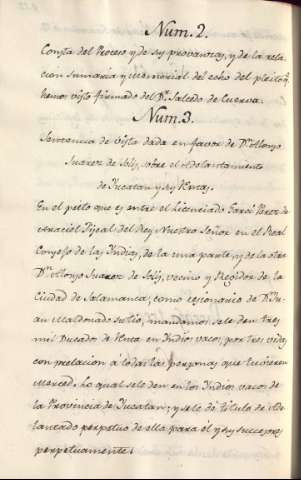 Num. 2.
Consta del Proceso y de sus provanzas, y de la rela
cion sumaria y memorial del echo del pleito q.
hemos visto firmado del D.r Salcedo de Cuerva.
Num. 3.
Sentencia de vista dada en favor de D.n Alonso
Suarez de Solis, sobre el Adelantamiento
de Yucatan y sus Rentas.
En el pleito que es entre el Licenciado Garci Perez de
Araciel Fiscal del Rey Nuestro Señor en el Real
Consejo de las Indias, de la una parte; y de la otra
D.n Alonso Suarez de Solis, vecino y Regidor de la
Ciudad de Salamanca, como cesionario de D.n Ju
an Maldonado su tio, mandamos, se le den tres
mil Ducados de Renta en Indios vacos, por tres vidas
con prelacion á todas las personas que tuvieren
merced. Lo qual se le den en los Indios vacos de
la Provincia de Yucatan; y se le dé titulo de Ade
lantado perpetuo de ella para él y sus succesores
perpetuamente: